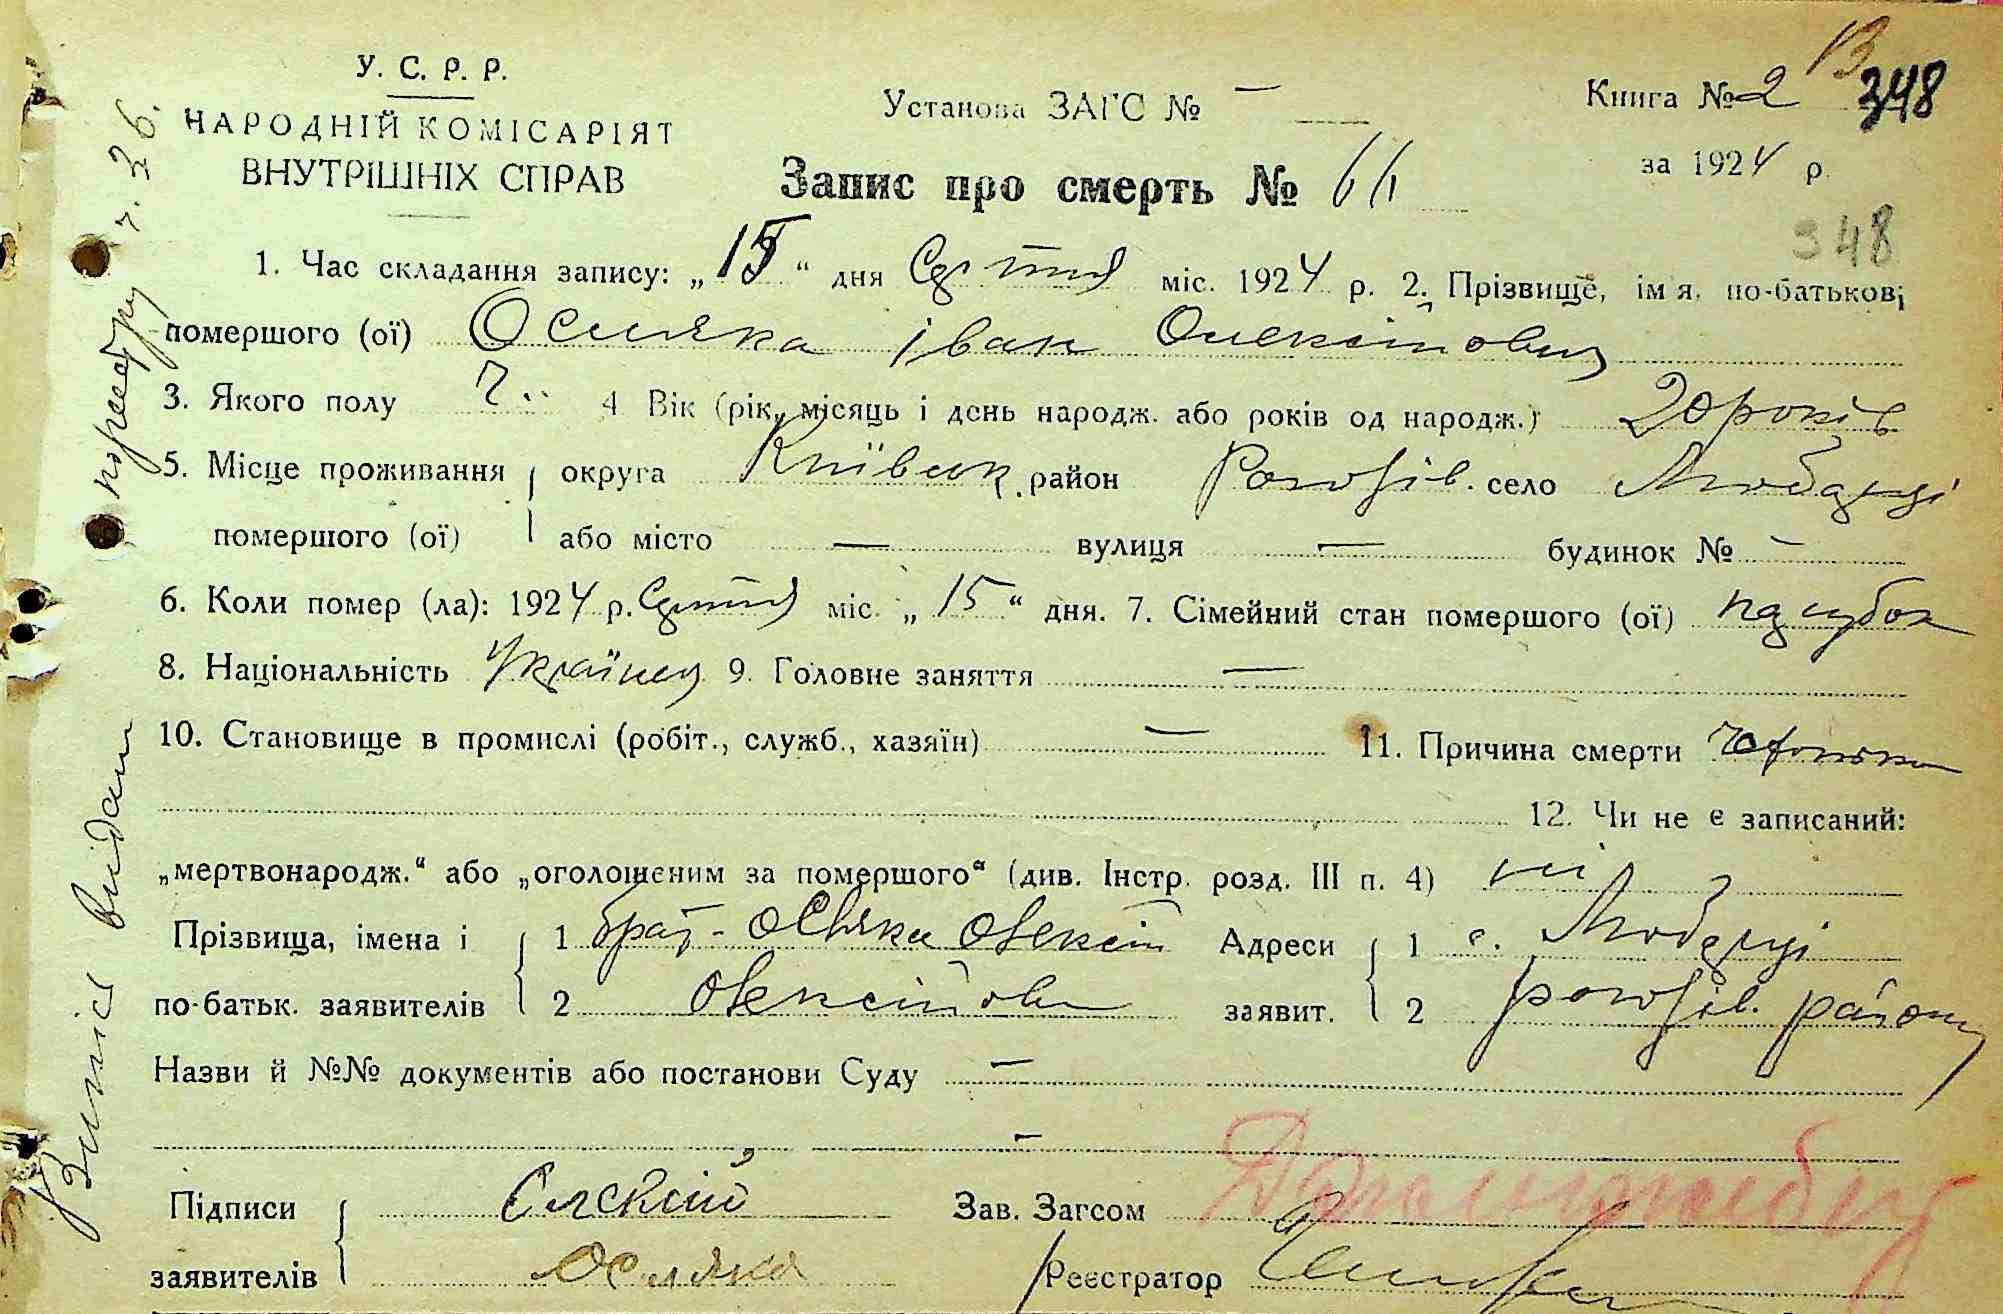 У. С. Р. Р.
НАРОДНІЙ КОМІСАРІЯТ
ВНУТРІШНІХ СПРАВ
Установа ЗАГС № —
Книга № 2
348
за 1924 р.
Запис про смерть № 66
348
1. Час складання запису: „15“ дня Серпня міс. 1924 р. 2. Прізвище, ім'я, по-батькові
помершого (ої) Осмяка Іван Олексійович
3. Якого полу ч. 4 Вік (рік, місяць і день народж. або років од народж.) 20 років
5. Місце проживання округа Київськ. район Рогозів. село Любарці
помершого (ої) або місто — вулиця — будинок № —
6. Коли помер (ла): 1924 р. Серпня міс. „15“ дня. 7. Сімейний стан помершого (ої) парубок
8. Національність Українец 9. Головне заняття —
10. Становище в промислі (робіт., служб., хазяїн) — 11. Причина смерти
12. Чи не є записаний:
„мертвонародж.“ або „оголошеним за помершого“ (див. Інстр. розд. III п. 4) ні
Прізвища, імена і 1 брат - Осмяка Олексій Адреси 1 с. Любарці
по-батьк. заявителів 2 Олексійов заявит. 2 Рогозів. району
Назви й №№ документів або постанови Суду —
—
Підписи Олексій Зав. Загсом
заявителів Осмяка Реєстратор
Випис видат